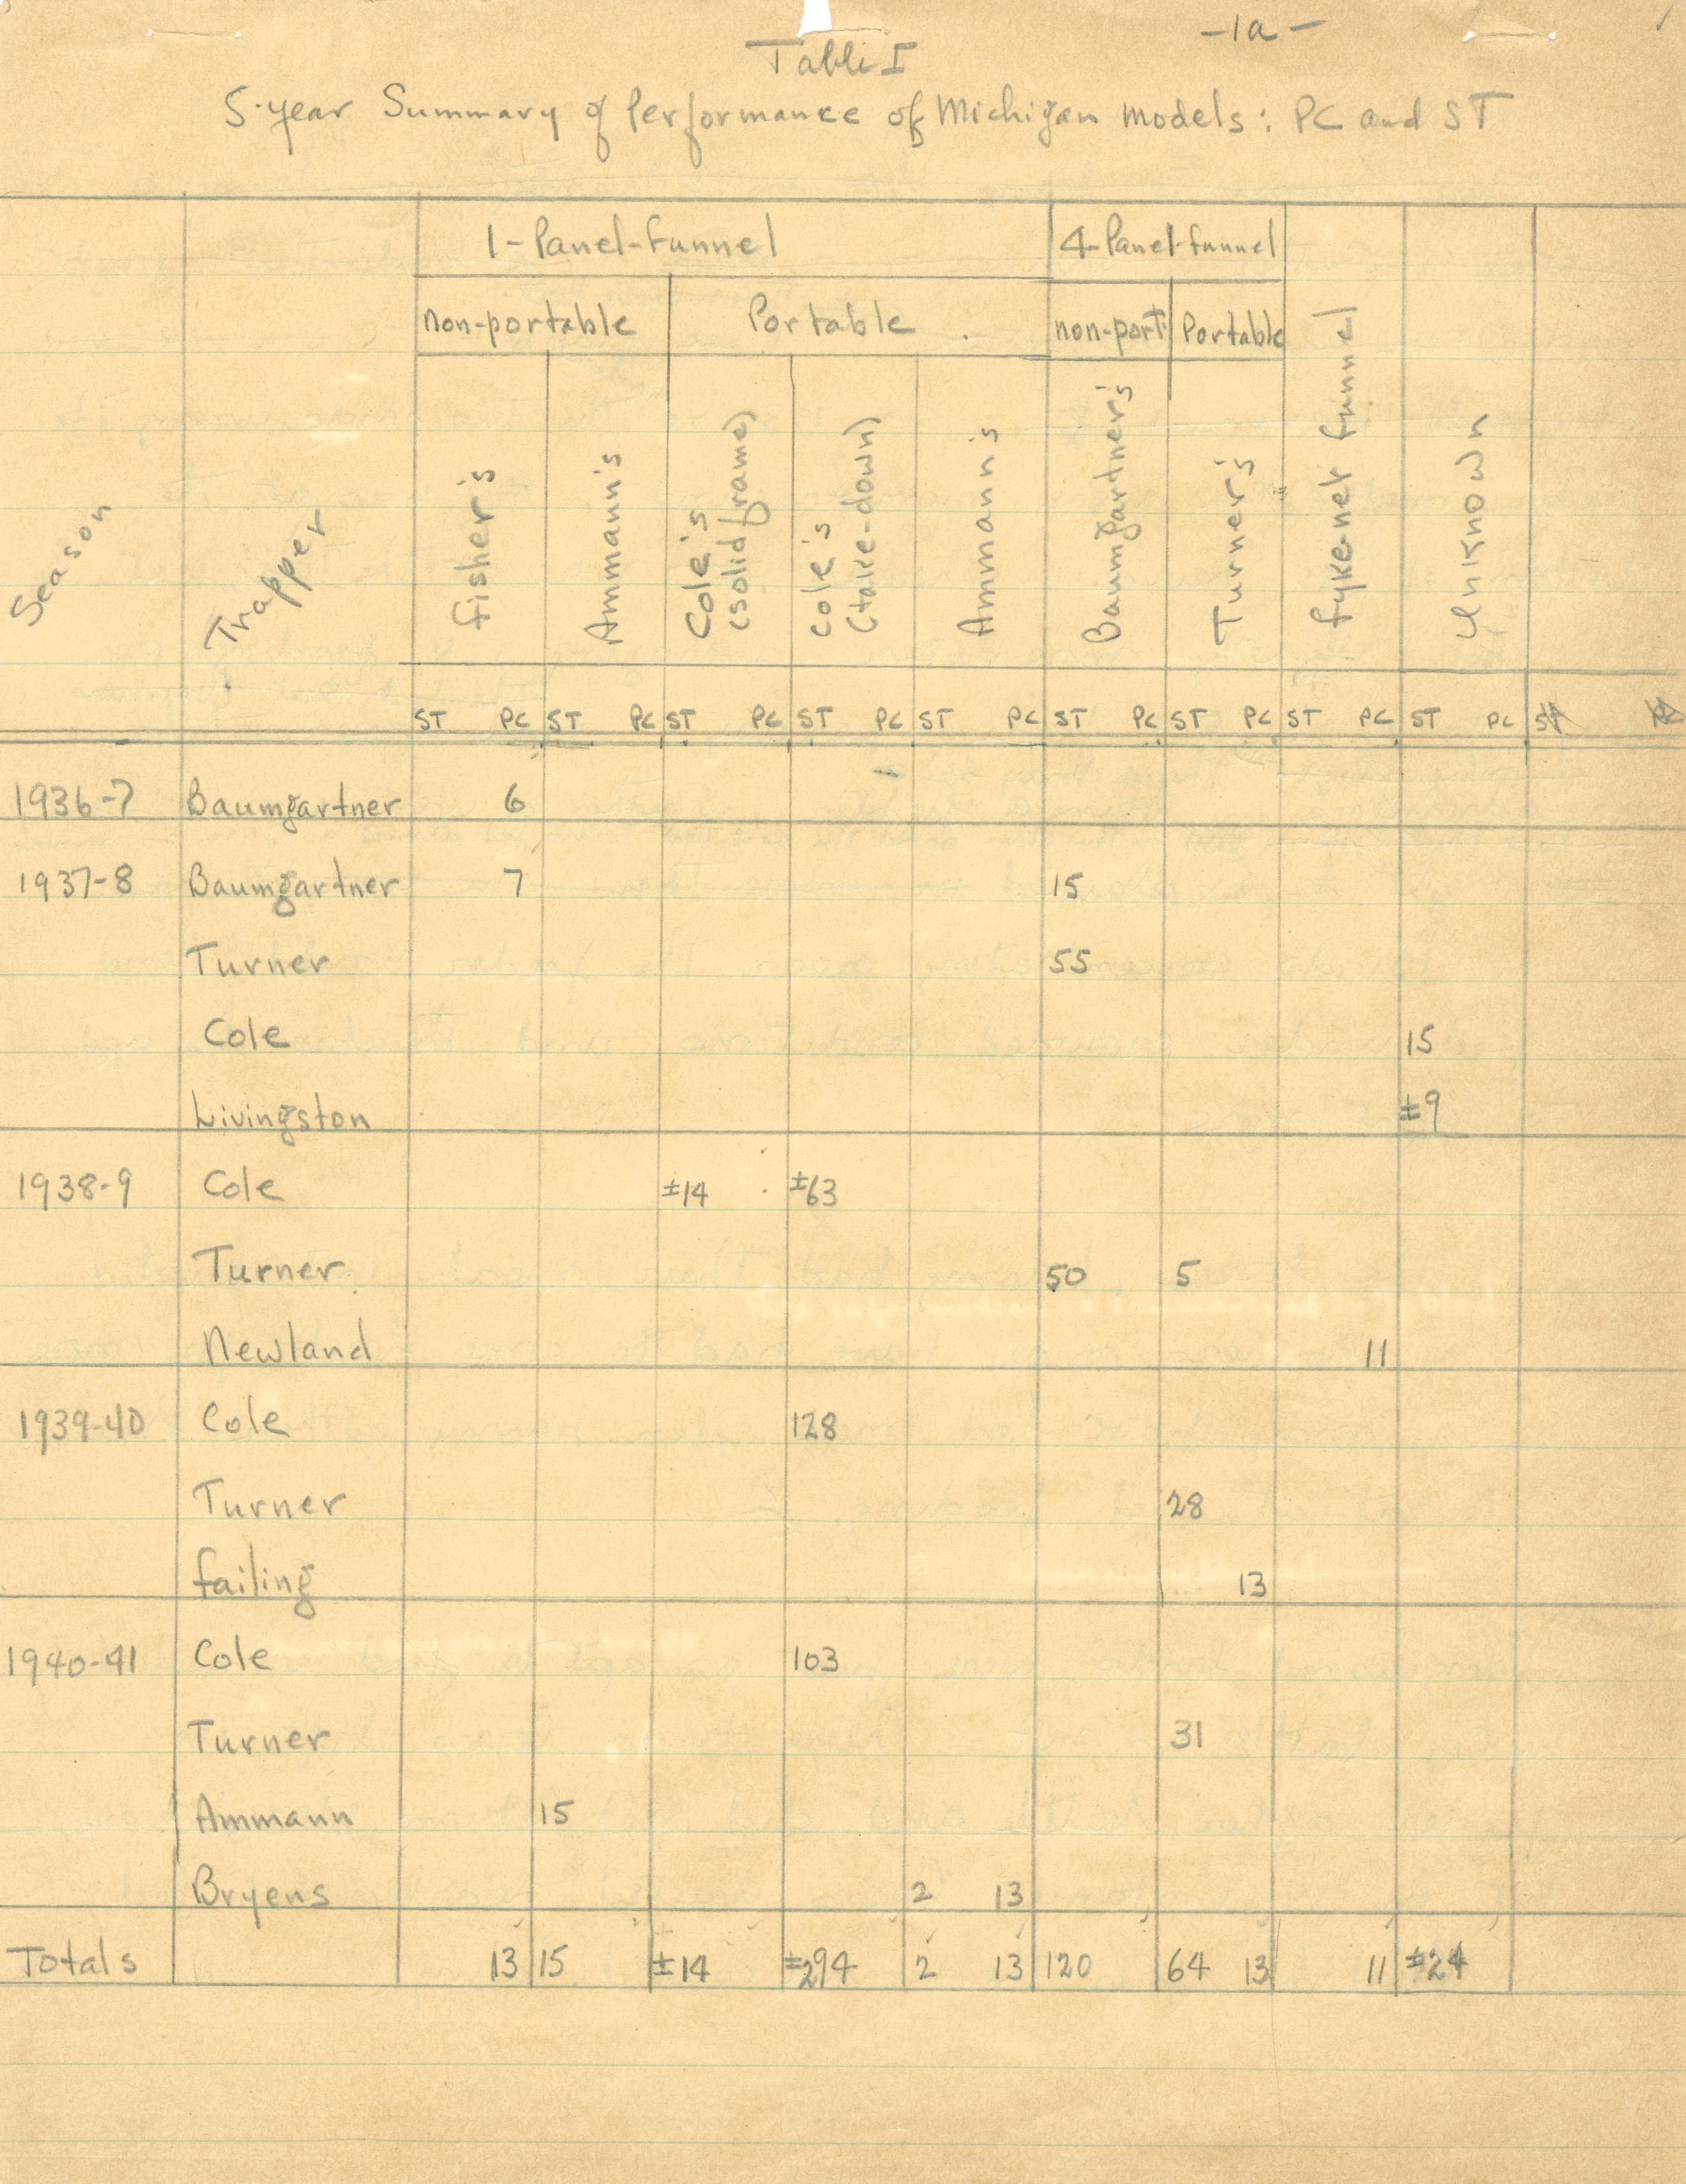 -1a-
Table I
5-year Summary of Performance of Michigan models: PC and ST
1-Panel-funnel 4-Panel-funnel
non-portable Portable non-port. Portable
Season Trapper Fisher's Ammann's Cole's (solid frame) Cole's (take-down) Ammann's Baumgartner's Turner's fyke-net funnel Unknown
ST PC ST PC ST PC ST PC ST PC ST PC ST PC ST PC ST PC
1936-7 Baumgartner 6
1937-8 Baumgartner 7 15
Turner 55
Cole 15
Livingston ±9
1938-9 Cole ±14 ±63
Turner 50 5
Newland 11
1939-40 Cole 128
Turner 28
Failing 13
1940-41 Cole 103
Turner 31
Ammann 15
Bryens 2 13
Totals 13 15 ±14 ±294 2 13 120 64 13 11 ±24